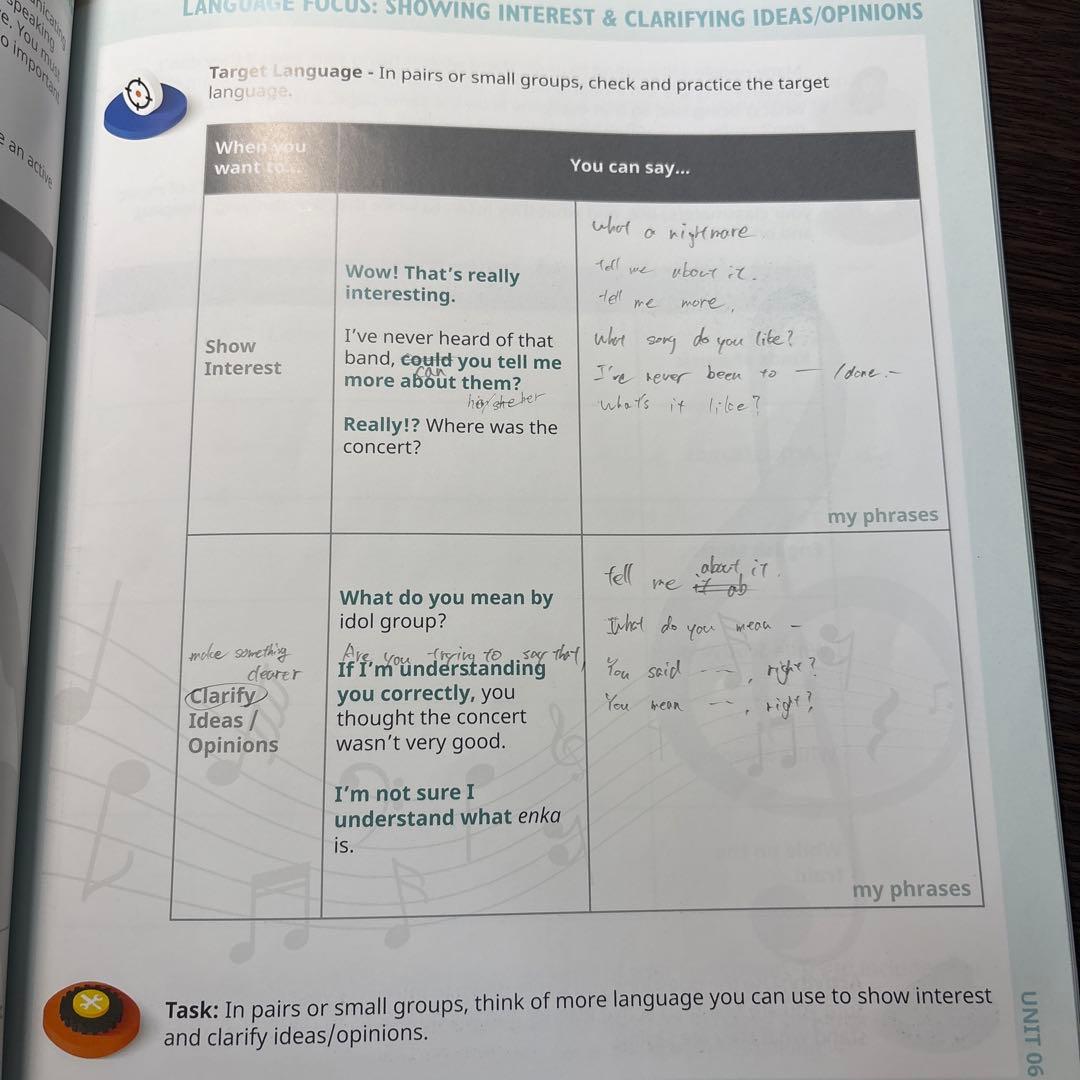 LANGUAGE FOCUS: SHOWING INTEREST & CLARIFYING IDEAS/OPINIONS
Target Language - In pairs or small groups, check and practice the target
language.
When you
want to...
You can say...
Show
Interest
Wow! That's really
interesting.
I've never heard of that
band, could you tell me
can
more about them?
him/she her
Really!? Where was the
concert?
what a nightmare
tell me about it.
tell me more,
What song do you like?
I've never been to — /done. —
What's it like?
my phrases
make something
clearer
Clarify
Ideas /
Opinions
What do you mean by
idol group?
Are you trying to say that
If I'm understanding
you correctly, you
thought the concert
wasn't very good.
I'm not sure I
understand what enka
is.
about it.
tell me it ab
What do you mean –
You said ---, right?
You mean ---, right?
my phrases
Task: In pairs or small groups, think of more language you can use to show interest
and clarify ideas/opinions.
UNIT 06